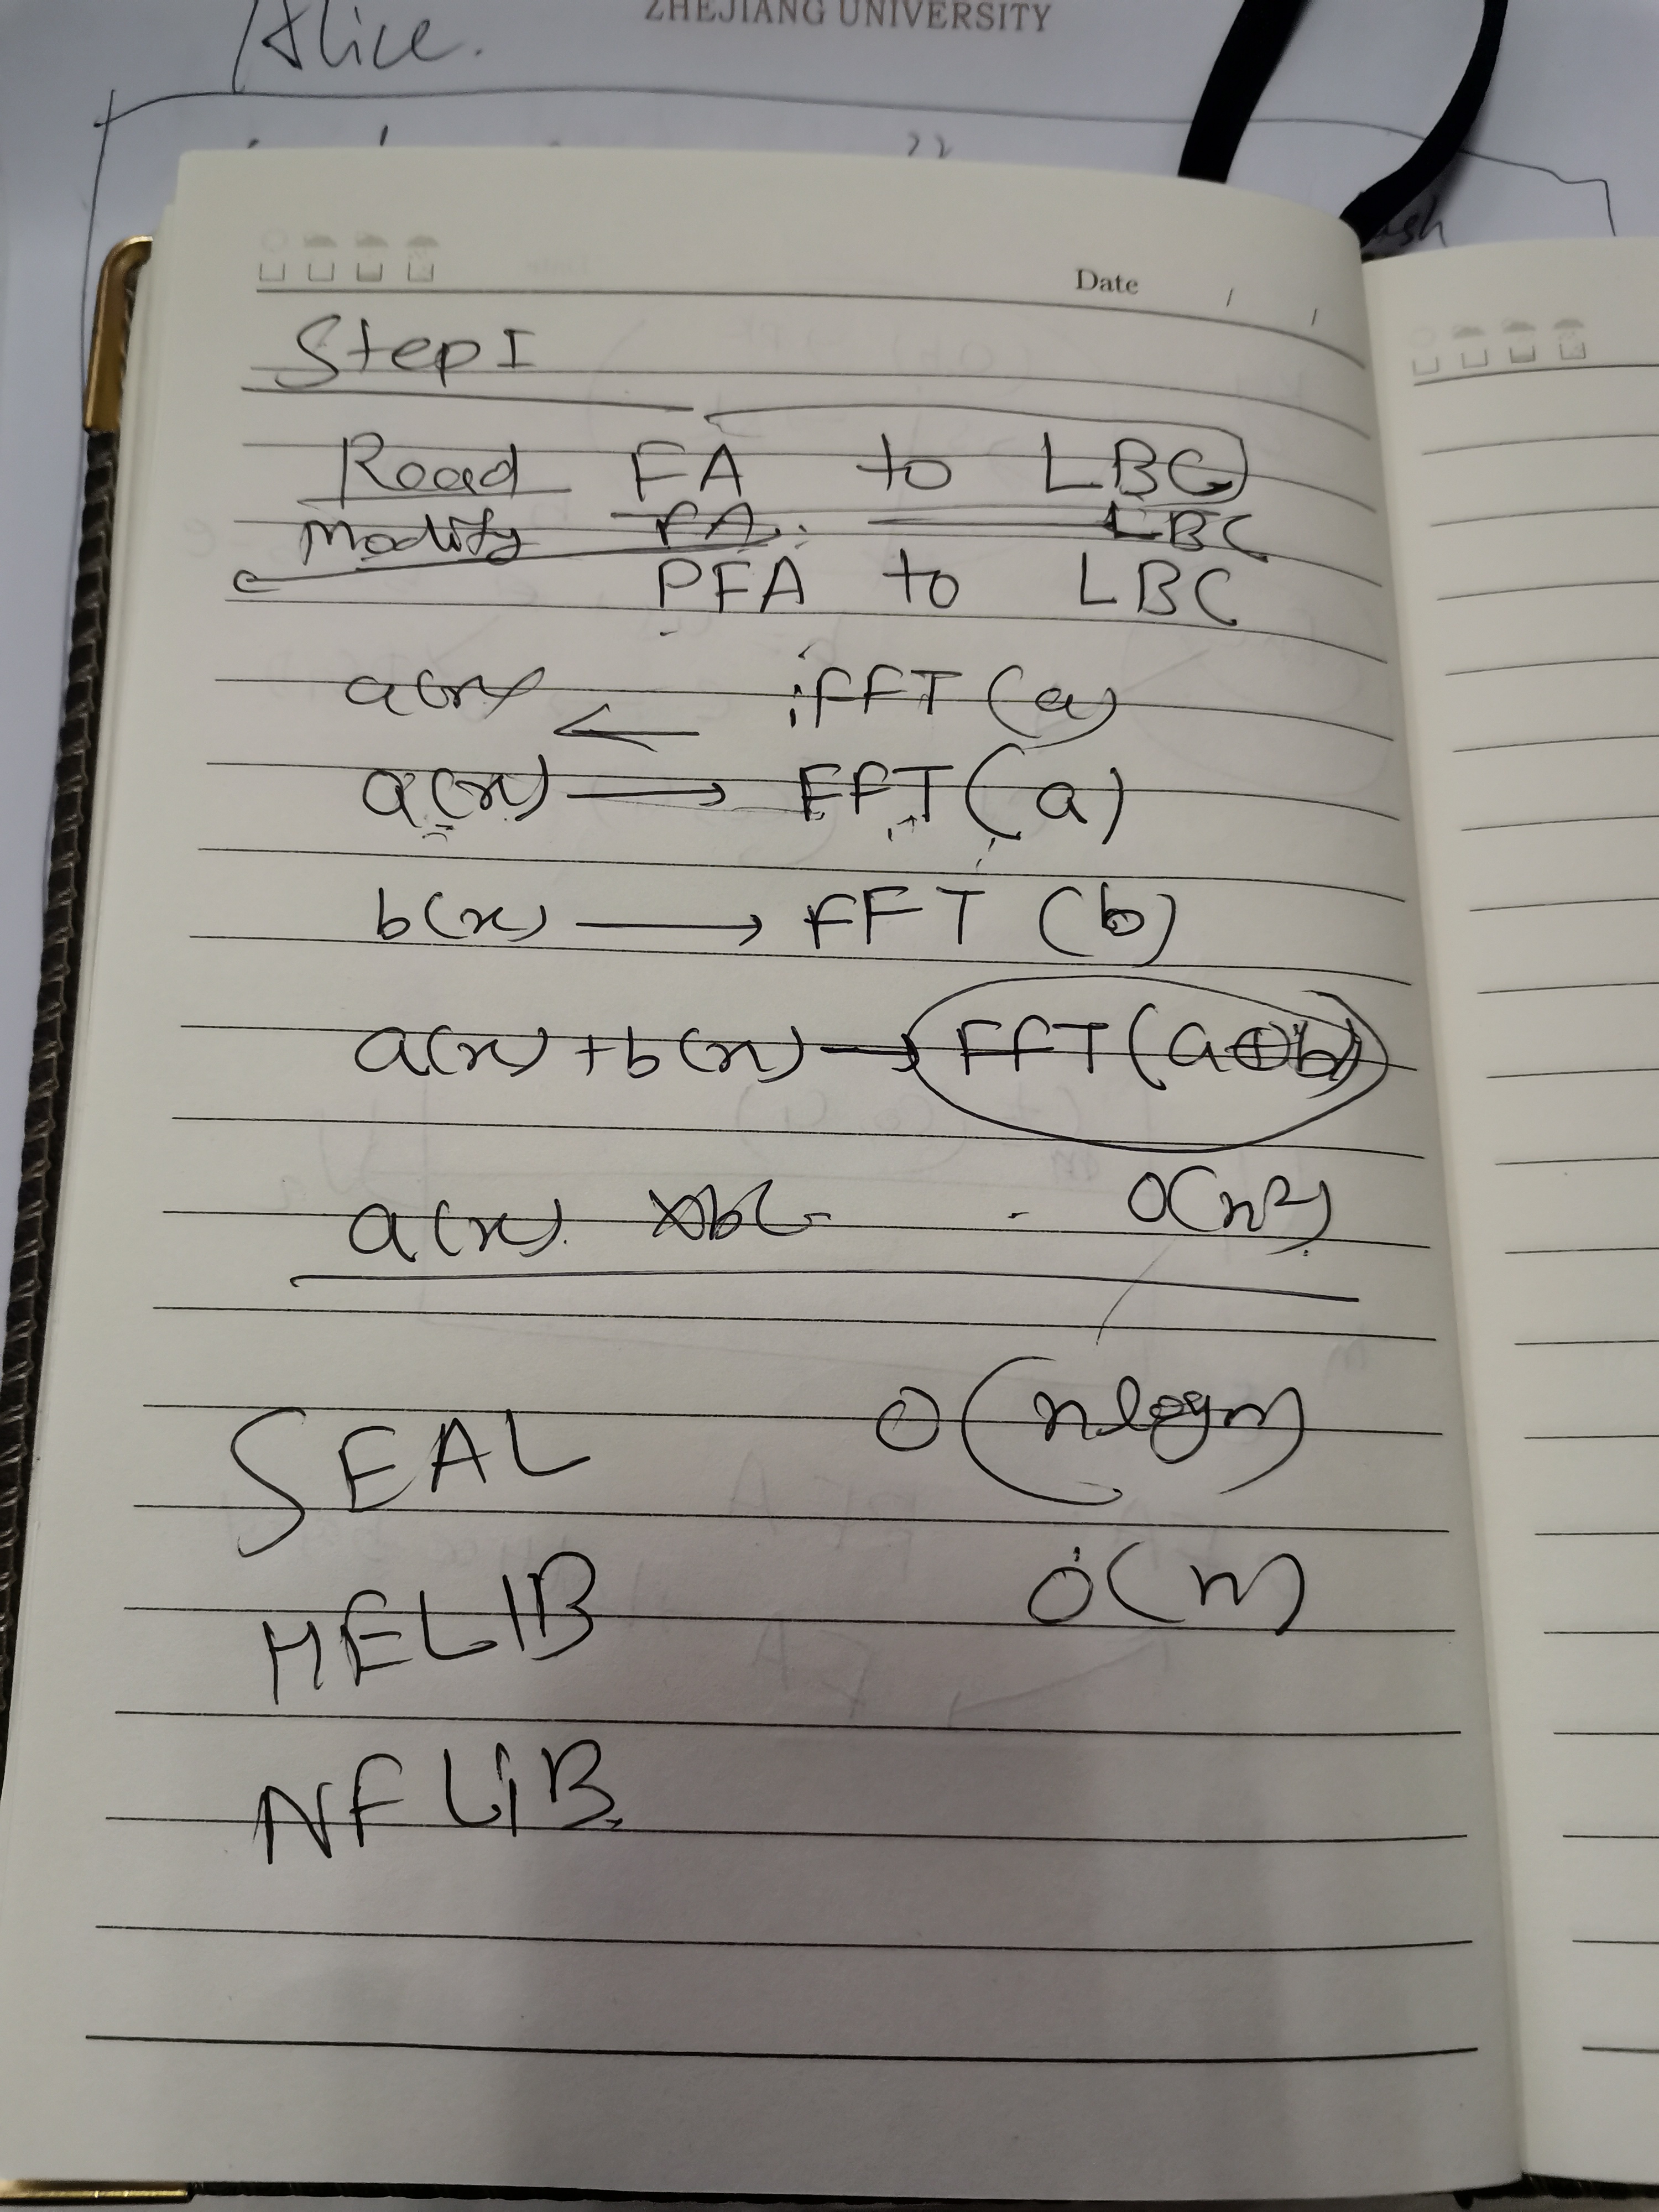 ZHEJIANG UNIVERSITY
Alice.
Date / /
Step I
Read FA to LBC
Modify FA LBC
PFA to LBC
a(x) ← iFFT(a)
a(x) → FFT(a)
b(x) → FFT(b)
a(x) + b(x) → FFT(a⊕b)
a(x) O(n²)
SEAL O(n log n)
HELIB O(n)
NFLIB